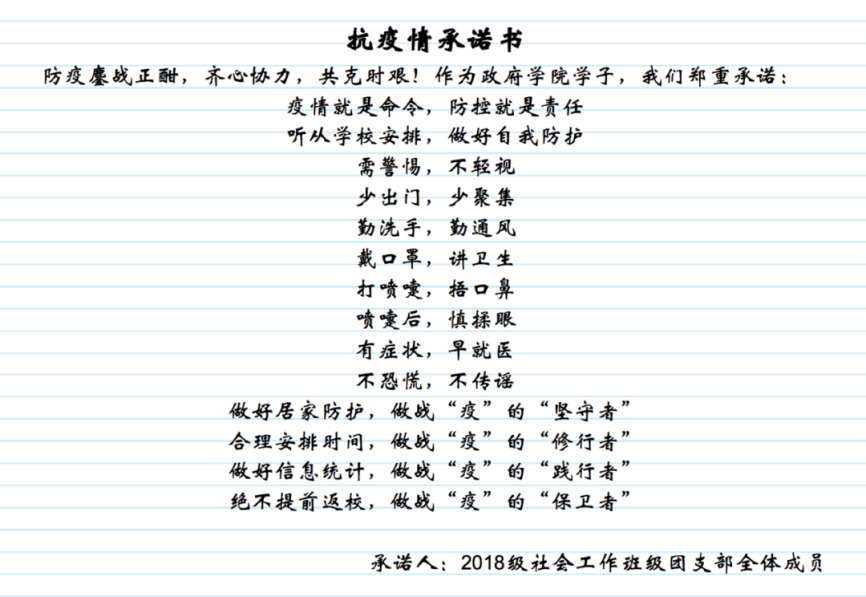 抗疫情承诺书
防疫鏖战正酣，齐心协力，共克时艰！作为政府学院学子，我们郑重承诺：
疫情就是命令，防控就是责任
听从学校安排，做好自我防护
需警惕，不轻视
少出门，少聚集
勤洗手，勤通风
戴口罩，讲卫生
打喷嚏，捂口鼻
喷嚏后，慎揉眼
有症状，早就医
不恐慌，不传谣
做好居家防护，做战“疫”的“坚守者”
合理安排时间，做战“疫”的“修行者”
做好信息统计，做战“疫”的“践行者”
绝不提前返校，做战“疫”的“保卫者”
承诺人：2018级社会工作班级团支部全体成员